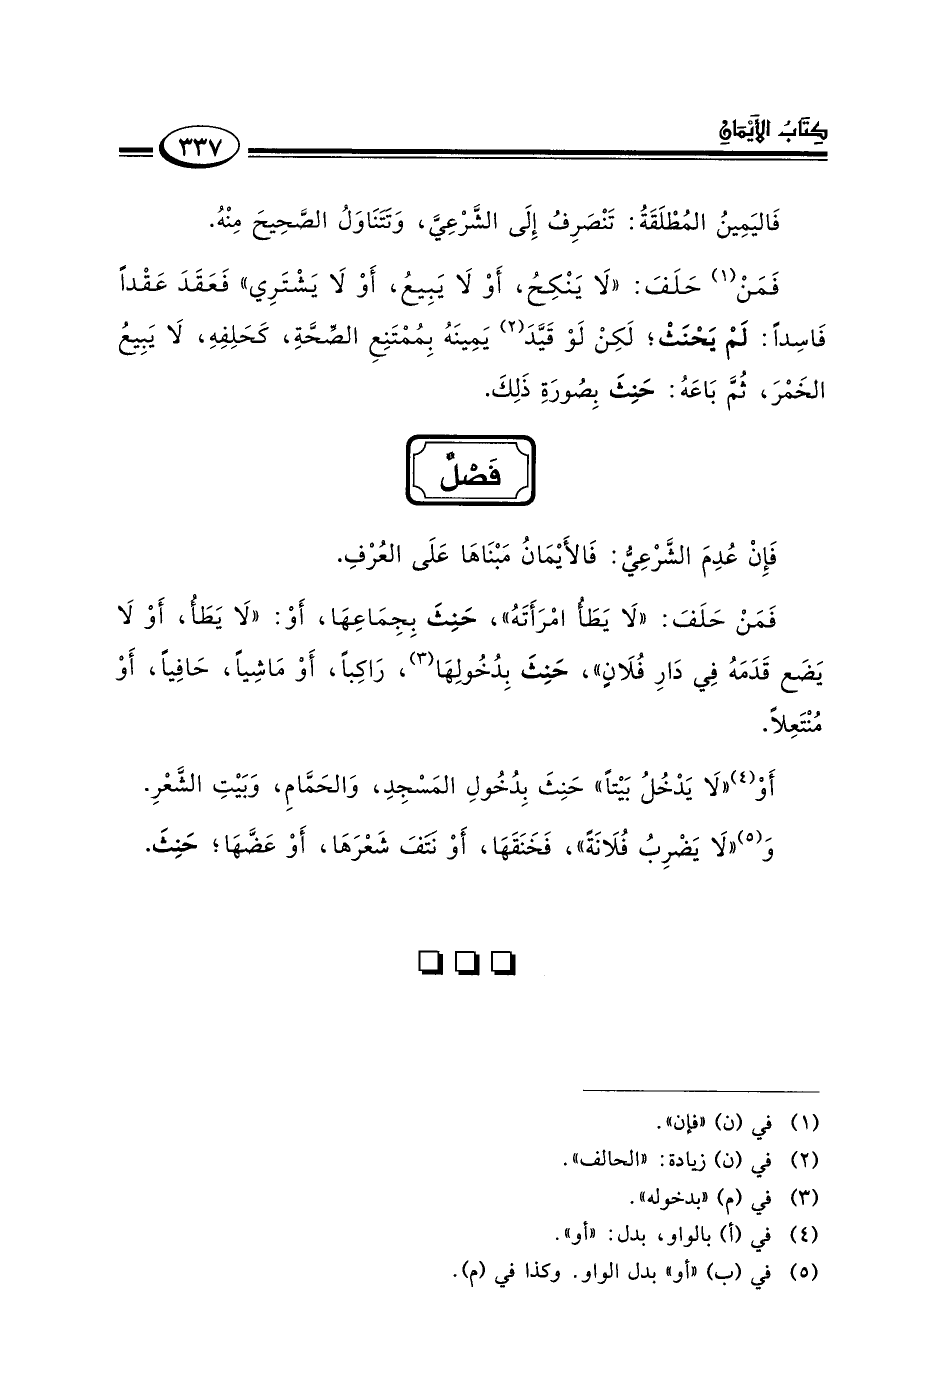 كِتَابُ الأَيْمَانِ
٣٣٧
فَاليَمِينُ المُطْلَقَةُ: تَنْصَرِفُ إِلَى الشَّرْعِيِّ، وَتَتَنَاوَلُ الصَّحِيحَ مِنْهُ.
فَمَنْ(١) حَلَفَ: «لَا يَنْكِحُ، أَوْ لَا يَبِيعُ، أَوْ لَا يَشْتَرِي» فَعَقَدَ عَقْداً
فَاسِداً: لَمْ يَحْنَثْ؛ لَكِنْ لَوْ قَيَّدَ(٢) يَمِينَهُ بِمُمْتَنِعِ الصِّحَّةِ، كَحَلِفِهِ، لَا يَبِيعُ
الخَمْرَ، ثُمَّ بَاعَهُ: حَنِثَ بِصُورَةِ ذَلِكَ.
فَصْلٌ
فَإِنْ عُدِمَ الشَّرْعِيُّ: فَالأَيْمَانُ مَبْنَاهَا عَلَى العُرْفِ.
فَمَنْ حَلَفَ: «لَا يَطَأُ امْرَأَتَهُ»، حَنِثَ بِجِمَاعِهَا، أَوْ: «لَا يَطَأُ، أَوْ لَا
يَضَع قَدَمَهُ فِي دَارِ فُلَانٍ»، حَنِثَ بِدُخُولِهَا(٣)، رَاكِباً، أَوْ مَاشِياً، حَافِياً، أَوْ
مُنْتَعِلاً.
أَوْ(٤)«لَا يَدْخُلُ بَيْتاً» حَنِثَ بِدُخُولِ المَسْجِدِ، وَالحَمَّامِ، وَبَيْتِ الشَّعْرِ.
وَ(٥)«لَا يَضْرِبُ فُلَانَةً»، فَخَنَقَهَا، أَوْ نَتَفَ شَعْرَهَا، أَوْ عَضَّهَا؛ حَنِثَ.
(١) في (ن) «فإن».
(٢) في (ن) زيادة: «الحالف».
(٣) في (م) «بدخوله».
(٤) في (أ) بالواو، بدل: «أو».
(٥) في (ب) «أو» بدل الواو. وكذا في (م).